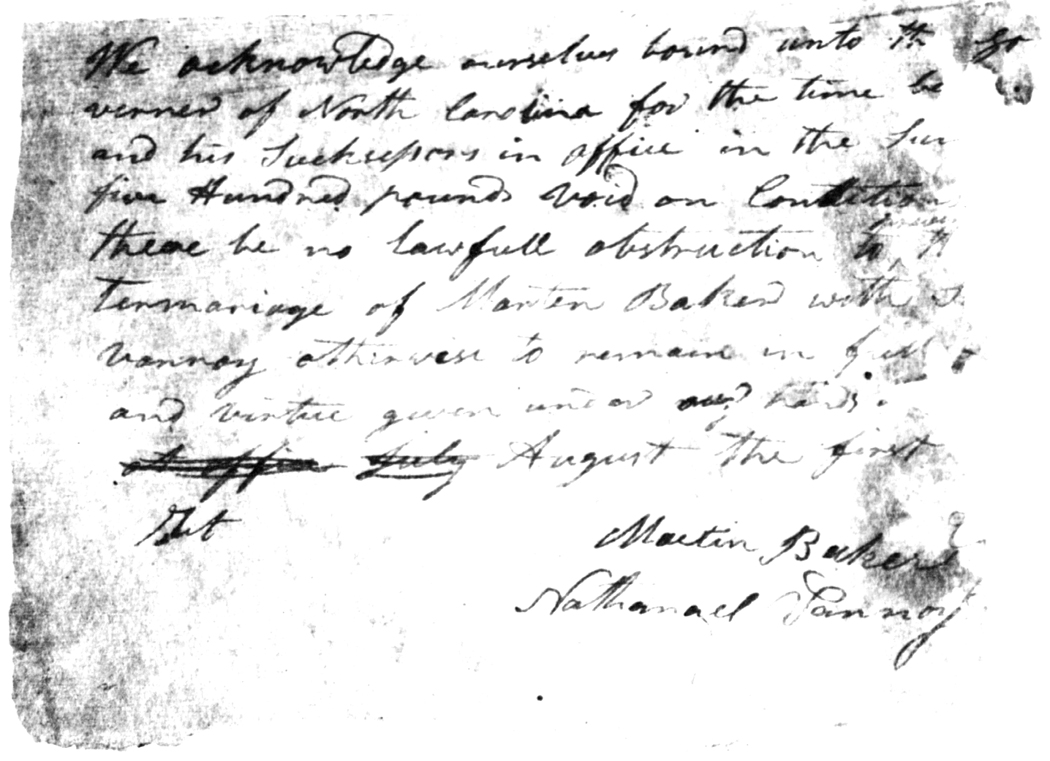 We acknowledge ourselves bound unto th Go
verner of North Carolina for the time be
and his Sucksessors in office in the Sum
five Hundred pounds void on Condition
theare be no lawfull obstruction to
Termariage of Marten Baker with
vannoy otherwise to remain in full
and virtue given under our hands
at office July August the first
Test
Martin Baker
Nathanael Vannoy